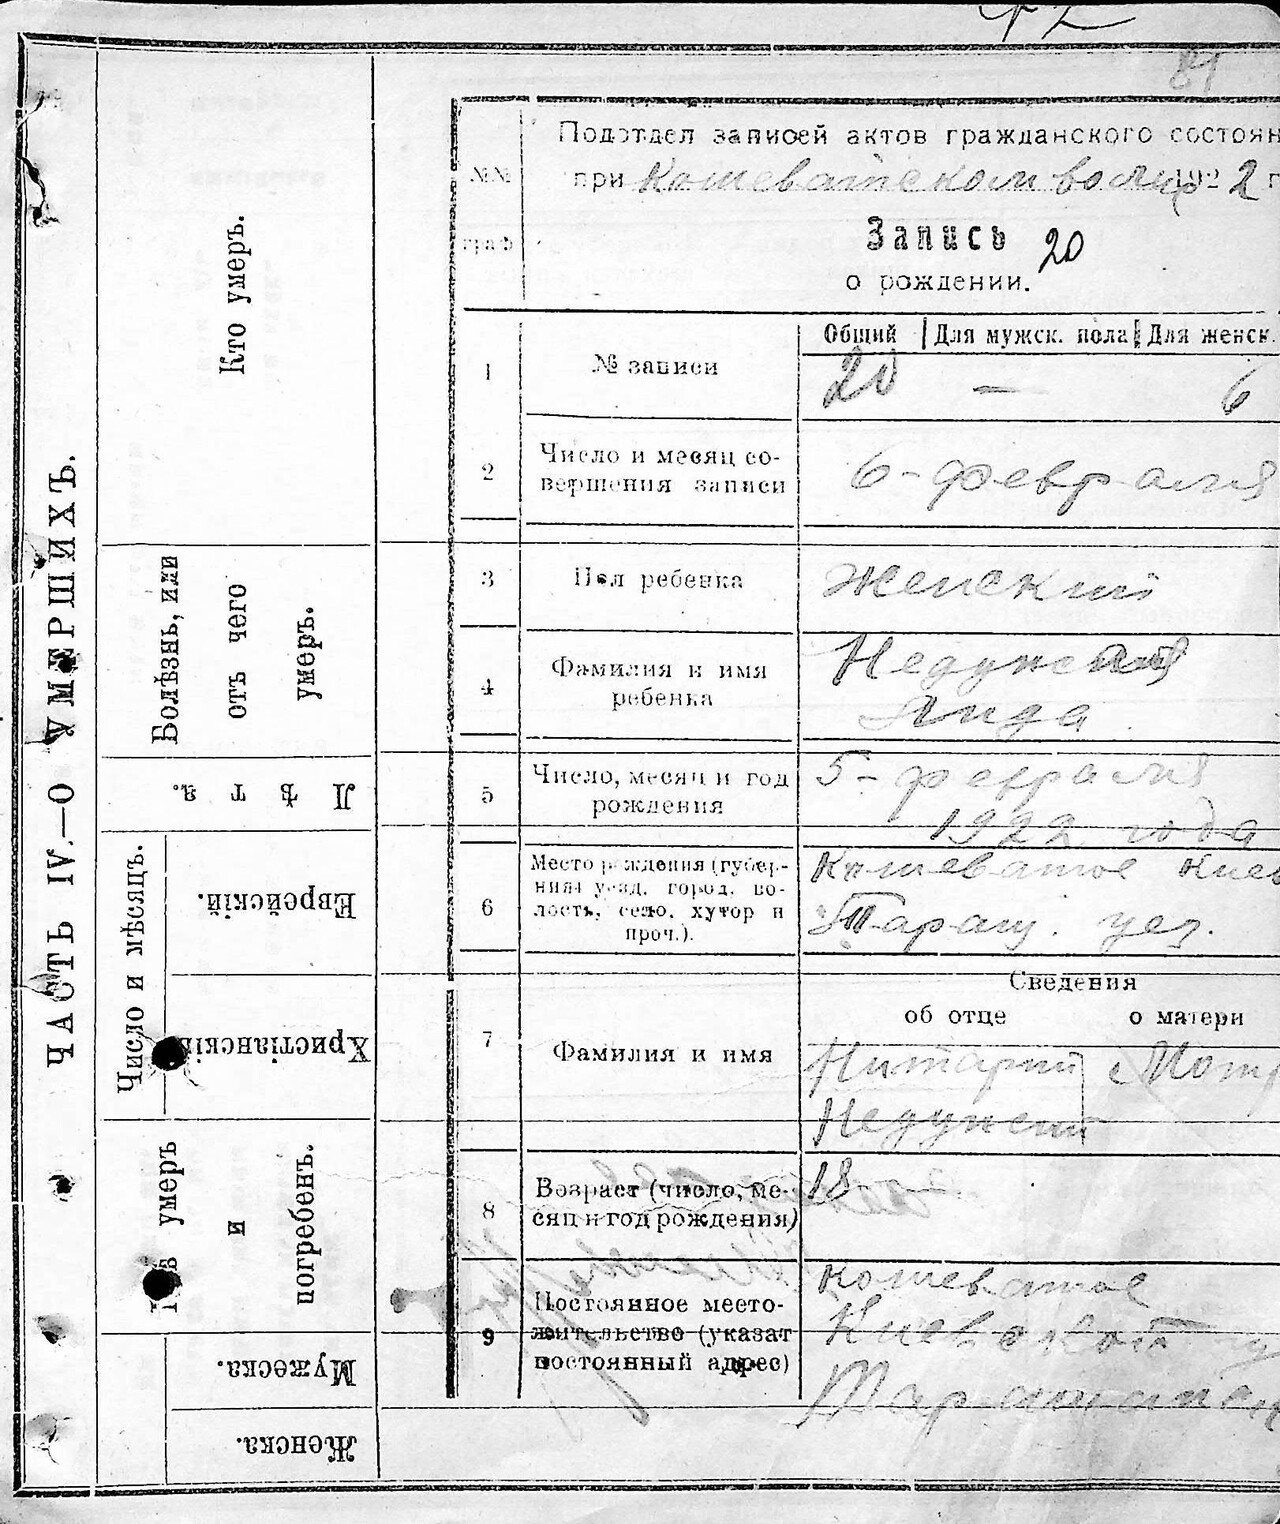 42
81
ЧАСТЬ IV.—О УМЕРШИХЪ.
Кто умеръ.
Болѣзнь, или
отъ чего
умеръ.
Лѣта.
Число и мѣсяцъ.
Еврейскій.
Христіанскій
умеръ
и
погребенъ.
Мужеска.
Женска.
№№
граф
Подотдел записей актов гражданского состоян
при Кошеватском волир 1922 г
Запись 20
о рождении.
Общий Для мужск. пола Для женск.
1 № записи 20 — 6
2 Число и месяц со-
вершения записи 6 - февраля
3 Пол ребенка женский
4 Фамилия и имя
ребенка Недунская
Лида
5 Число, месяц и год
рождения 5 - февраля
1922 года
6 Место рождения (губер-
ния уезд, город, во-
лость, село, хутор и
проч.). Кошеватое Киев
Таращ. уез.
Сведения
об отце о матери
7 Фамилия и имя
Нитарий Мотр
Недунский
8 Возраст (число, ме-
сяц и год рождения) 18
9 Постоянное место-
жительство (указат
постоянный адрес) Кошеватое
Киевской гу
Таращанск